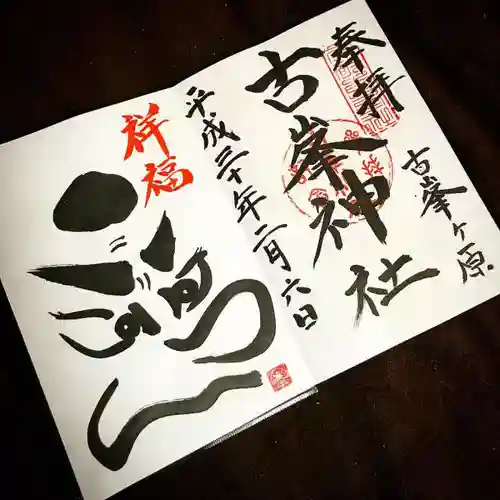 奉拝
古峯ヶ原
古峯神社
平成三十年二月六日
祥福